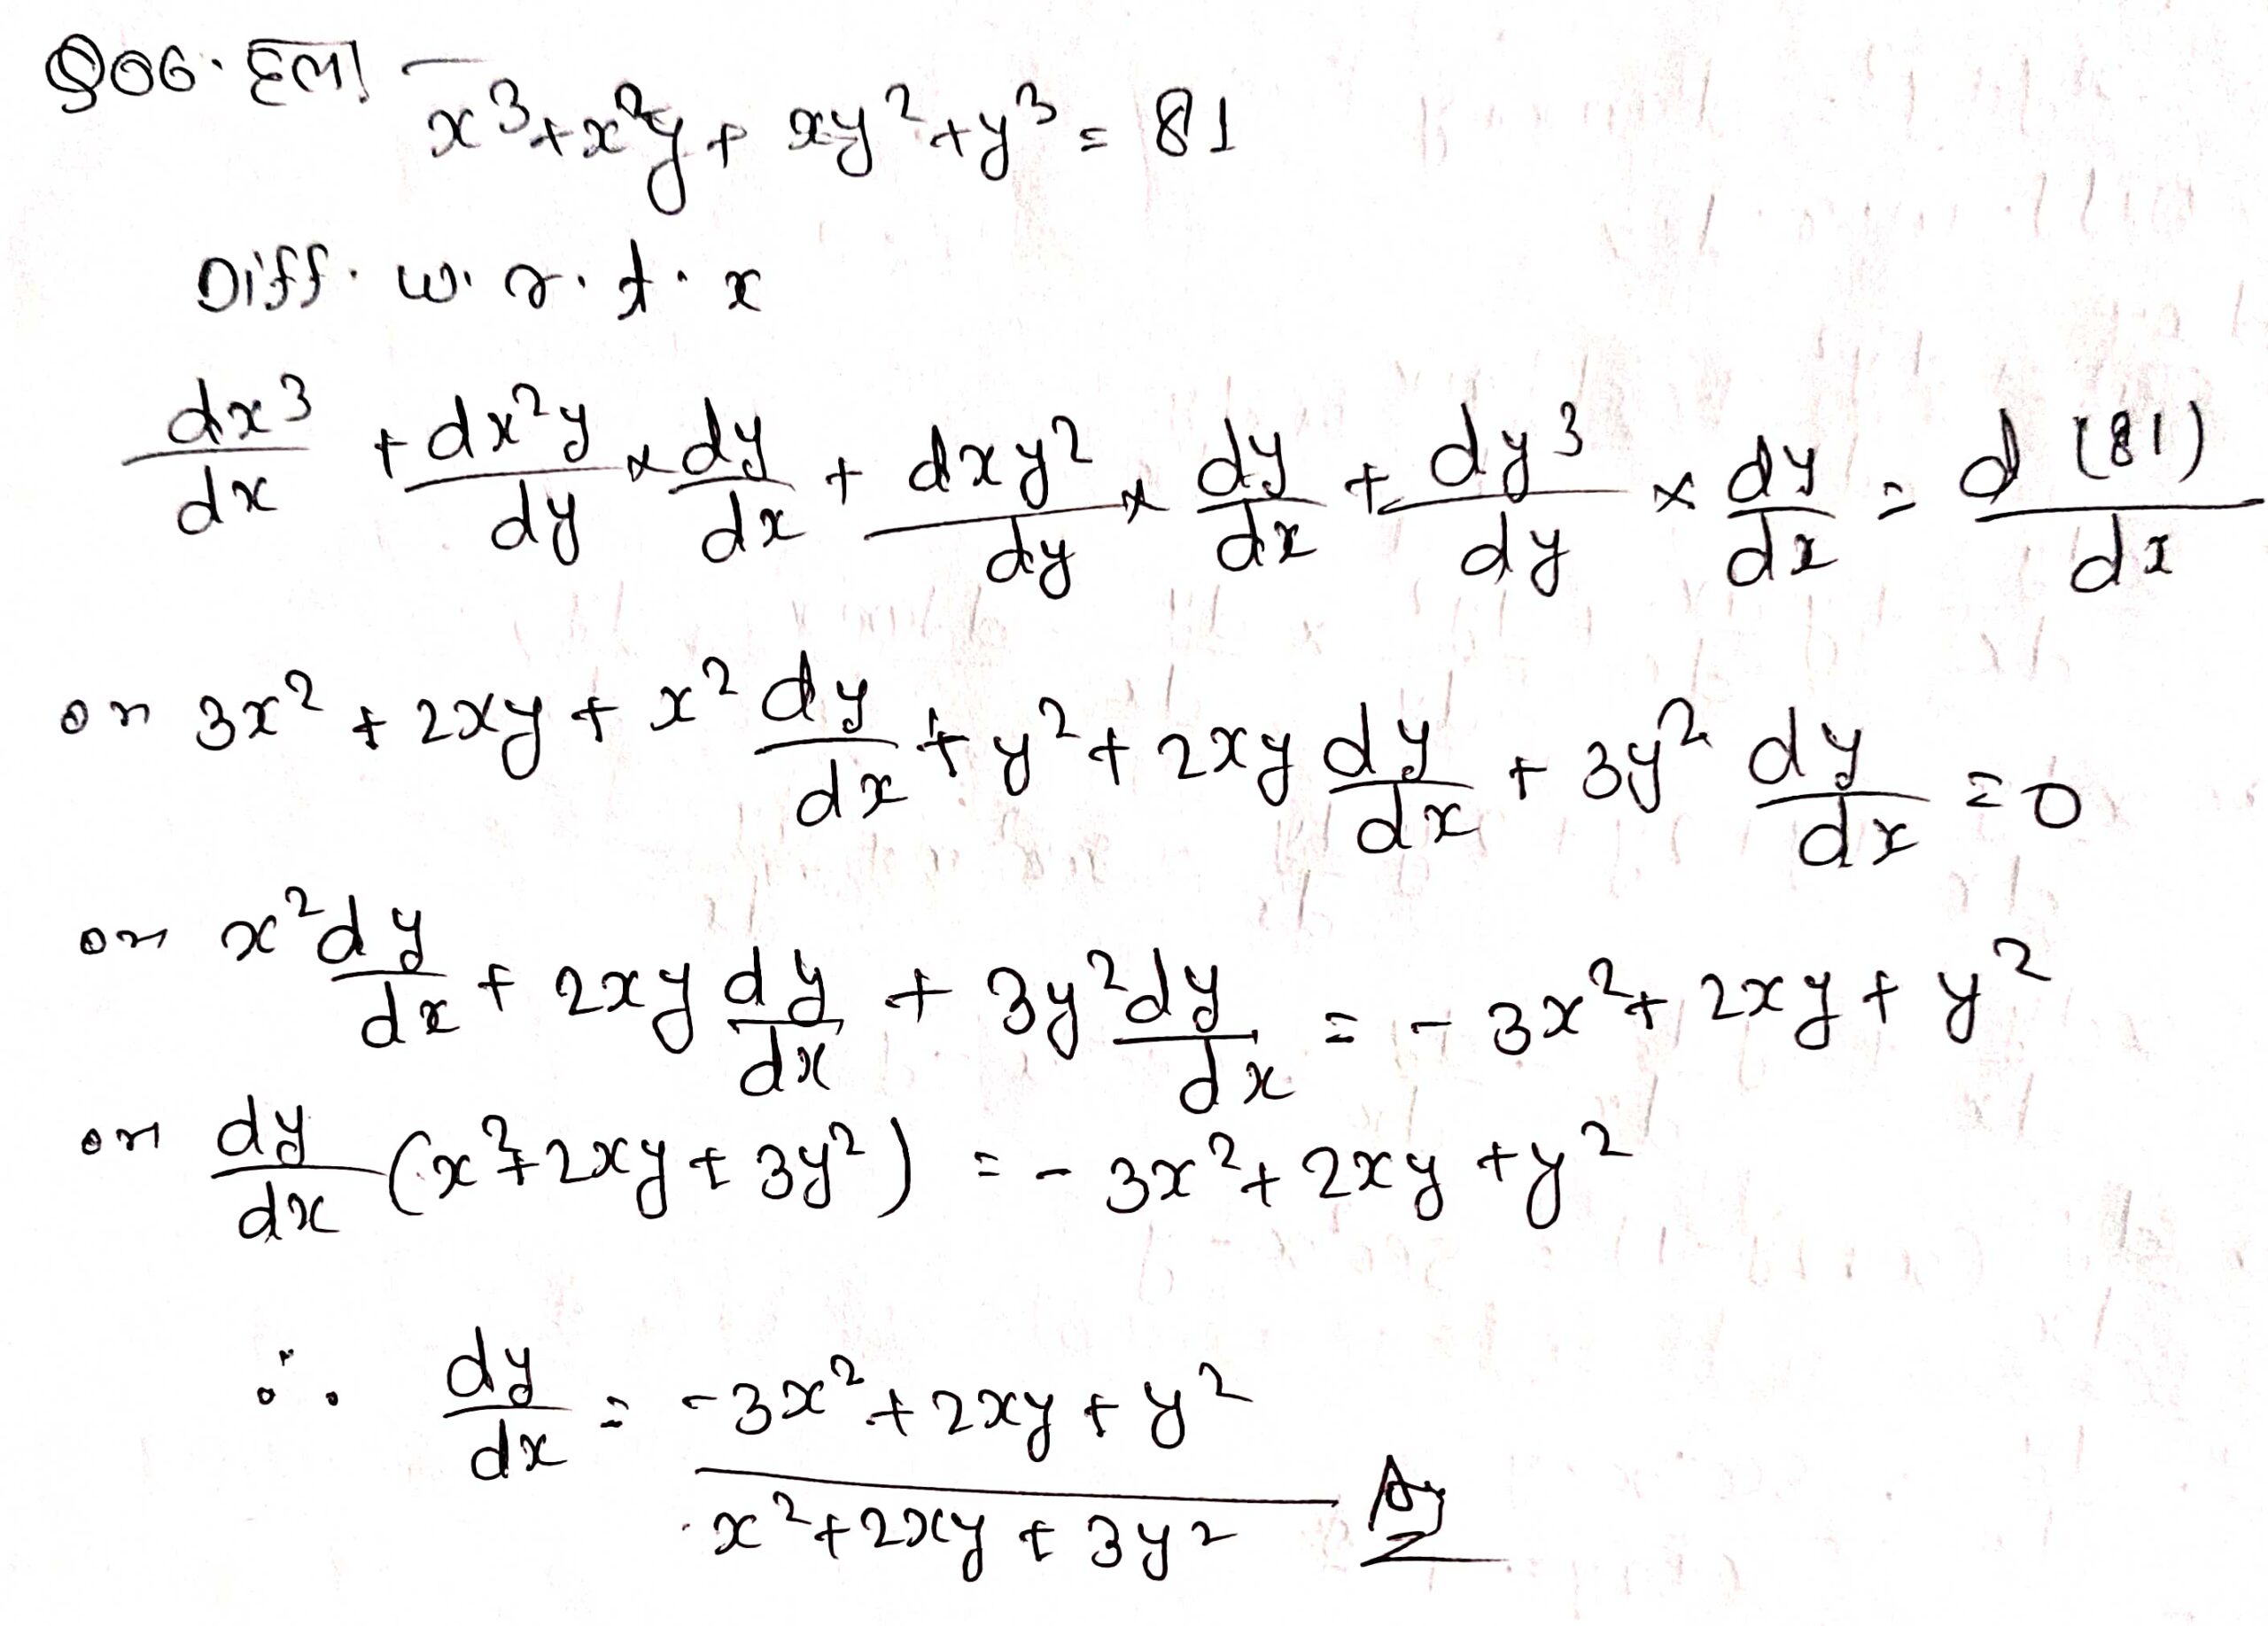 Q06. हल! -
x³+x²y+ xy²+y³ = 81
Diff. w.r.t. x
dx³/dx + dx²y/dy × dy/dx + dxy²/dy × dy/dx + dy³/dy × dy/dx = d(81)/dx
or 3x² + 2xy + x² dy/dx + y² + 2xy dy/dx + 3y² dy/dx = 0
or x² dy/dx + 2xy dy/dx + 3y² dy/dx = - 3x² + 2xy + y²
or dy/dx (x²+2xy+3y²) = - 3x² + 2xy + y²
∴ dy/dx = -3x²+2xy+y² / x²+2xy+3y² Ans